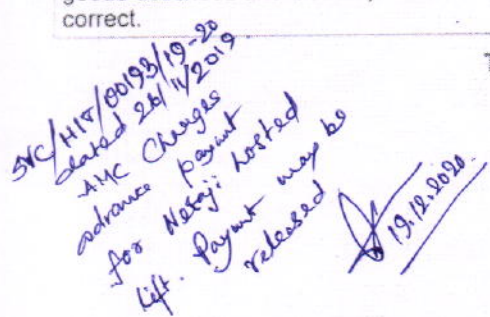 correct.
SVC/HIT/00193/19-20
dated 26/11/2019
AMC Charges
advance payment
for Netaji hostel
lift. Payment may be
released
19.12.2020.